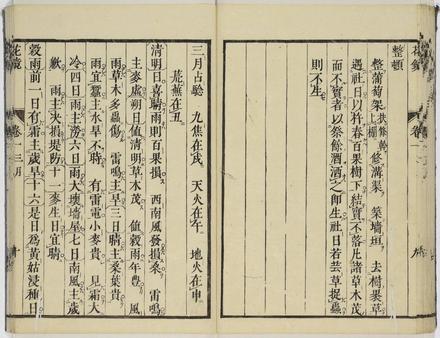 花鏡 卷一
整頓
整蒲萄架 修溝渠 築墻垣 去樹裹草
遇社日以杵舂百果樹下結實不落凡諸草木茂
而不實者以祭餘酒洒之卽生社日若芸草捉蟲
則不生
三月占驗 九焦在戌 天火在午 地火在申
荒蕪在丑
清明日喜晴雨則百果損 西南風發損桑 雷鳴
主麥處朔日値清明草木茂 値穀雨年豐 風
雨草木多蟲傷 雷鳴主旱三日晴主桑葉貴
雨宜蠶主水旱不時 有雷電小麥貴 見霜大
冷四日雨主澇六日雨大壞墻屋七日南風主歲
歉 雨主決損堤防十一麥生日宜晴
穀雨前一日有霜主歲旱十六是日爲黃姑浸種日
花鏡 卷一 三月